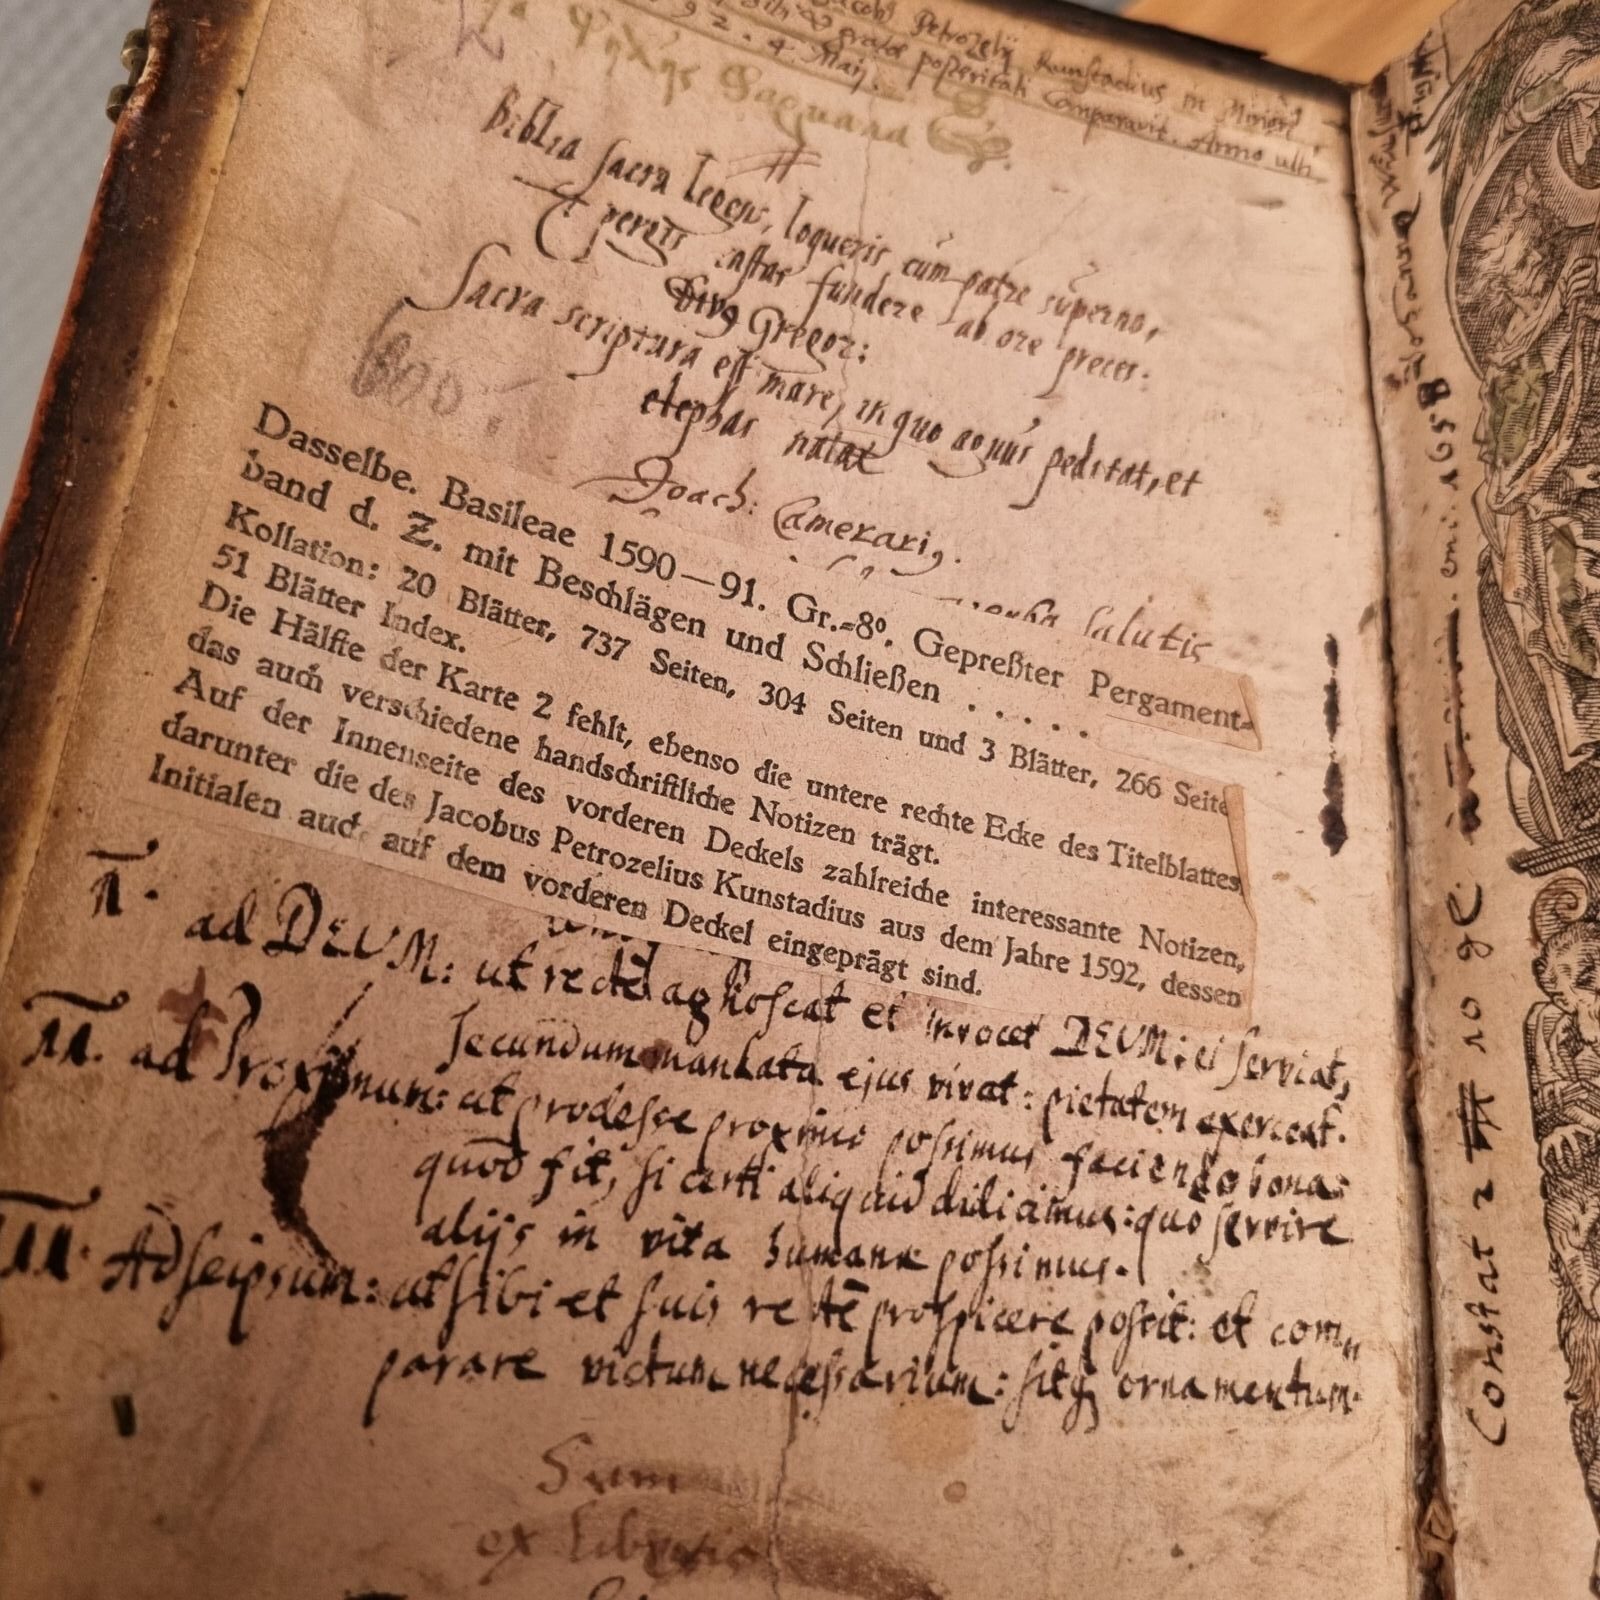 Jacobi Petrozelij Kunstadius in Minori
gratae posteritati comparavit. Anno ulti
92. 4. Maij.
ψυχῆς
Biblia sacra legens, loqueris cum patre superno,
pergis instar fundere ab ore preces:
Divus Gregor:
Sacra scriptura est mare, in quo agnus peditat, et
elephas natat
Joach: Camerari9.
salutis
Dasselbe. Basileae 1590—91. Gr.=8º. Gepreßter Pergament=
band d. Z. mit Beschlägen und Schließen . . . . .
Kollation: 20 Blätter, 737 Seiten, 304 Seiten und 3 Blätter, 266 Seite
51 Blätter Index.
Die Hälfte der Karte 2 fehlt, ebenso die untere rechte Ecke des Titelblattes,
das auch verschiedene handschriftliche Notizen trägt.
Auf der Innenseite des vorderen Deckels zahlreiche interessante Notizen,
darunter die des Jacobus Petrozelius Kunstadius aus dem Jahre 1592, dessen
Initialen auch auf dem vorderen Deckel eingeprägt sind.
I. ad DEUM: ut recte agnoscat et invocet DEUM: ei serviat,
secundum mandata ejus vivat: pietatem exerceat.
II. ad Proximum: ut prodesse proximo possimus faciendo bona:
quod fit, si certi aliquid didicimus: quo servire
alijs in vita humana possimus.
III. Ad seipsum: ut sibi et suis recte prospicere possit: et com„
parare victum necessarium: sitq3 ornamentum.
Sum
ex Libris
Constat 2 # 10 gl